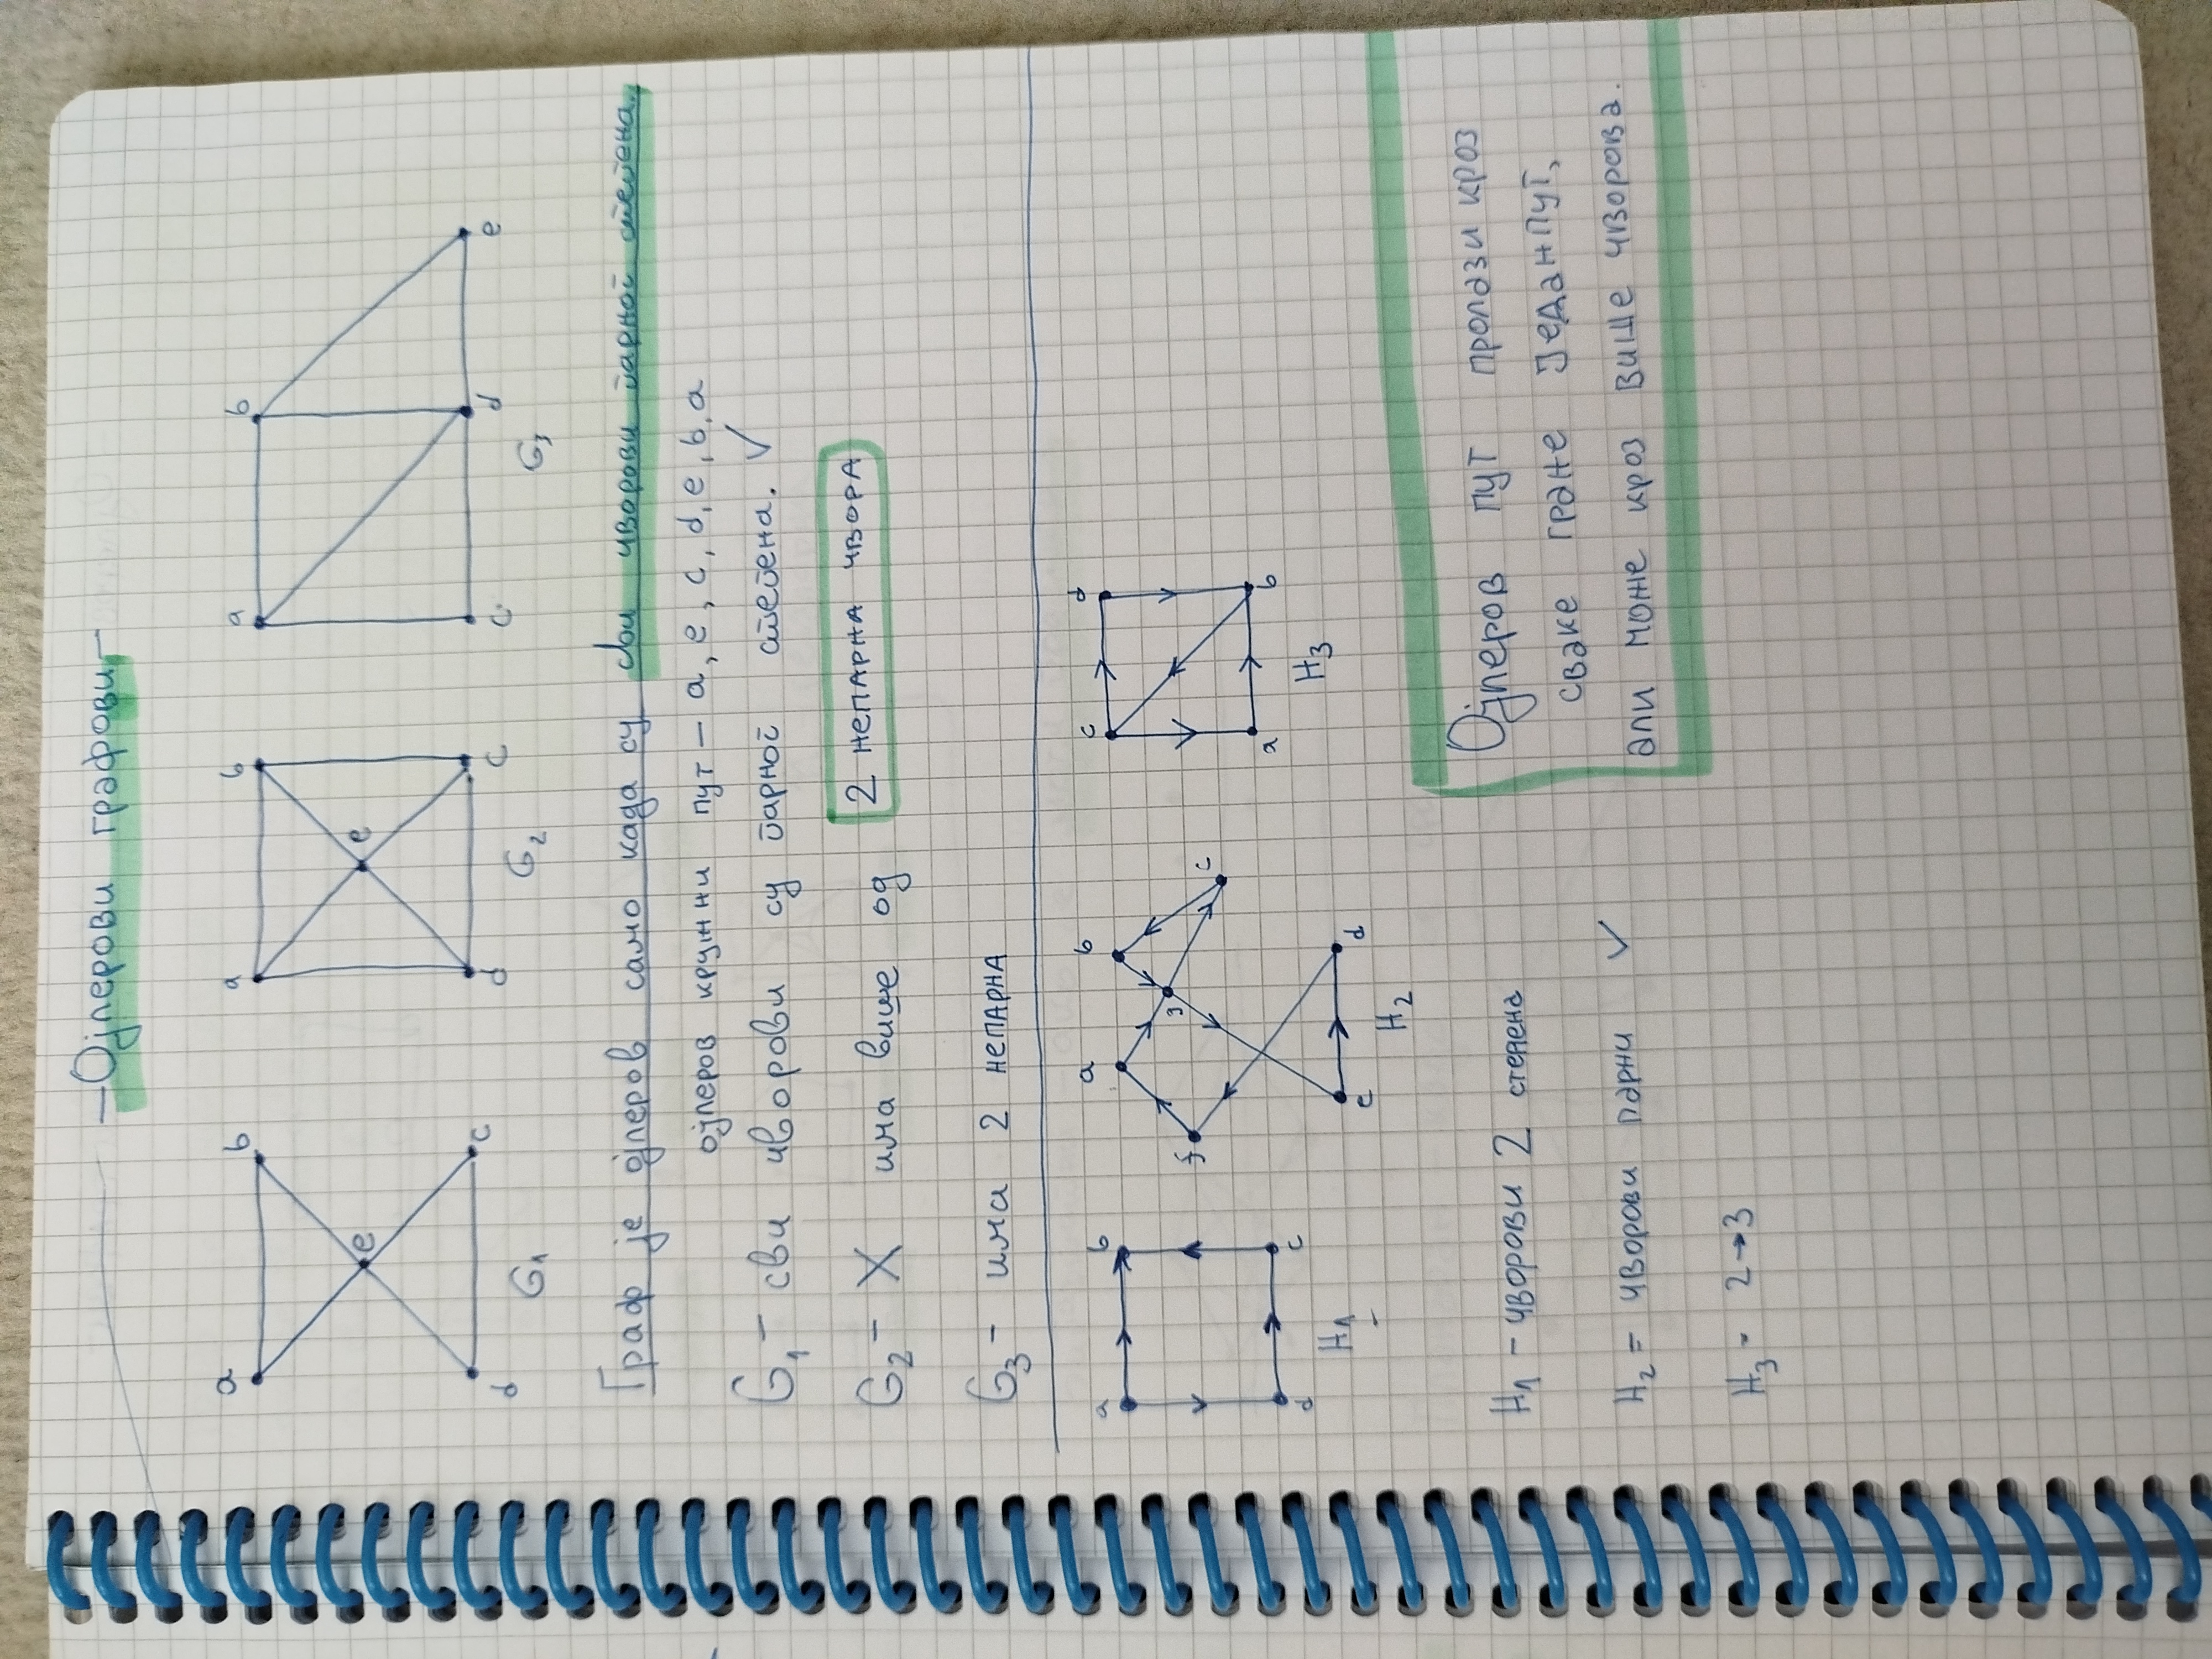 —Ојлерови графови—
a b a b a b
e e
d c d c c d e
G₁ G₂ G₃
Граф је ојлеров само када су сви чворови парног степена.
ојлеров кружни пут – a, e, c, d, e, b, a
G₁ – сви чворови су парног степена. ✓
G₂ – X има више од 2 непарна чвора
G₃ – има 2 непарна
a b a b c d
f g c
d c e d a b
H₁ H₂ H₃
H₁ – чворови 2 степена
H₂ = чворови парни ✓
H₃ - 2→3
Ојлеров пут пролази кроз
сваке гране Једанпут,
али може кроз више чворова.